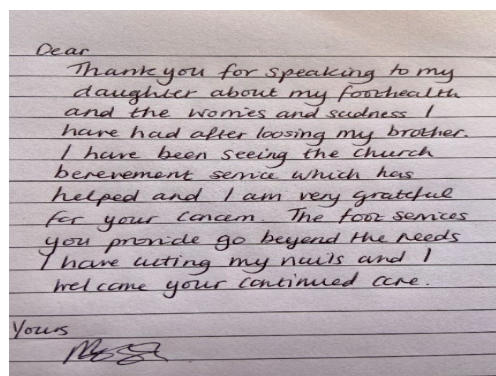 Dear
Thank you for speaking to my
daughter about my foot health
and the worries and sadness I
have had after loosing my brother.
I have been seeing the church
berevement service which has
helped and I am very grateful
for your concern. The foot services
you provide go beyond the needs
I have cutting my nails and I
welcome your continued care.
Yours